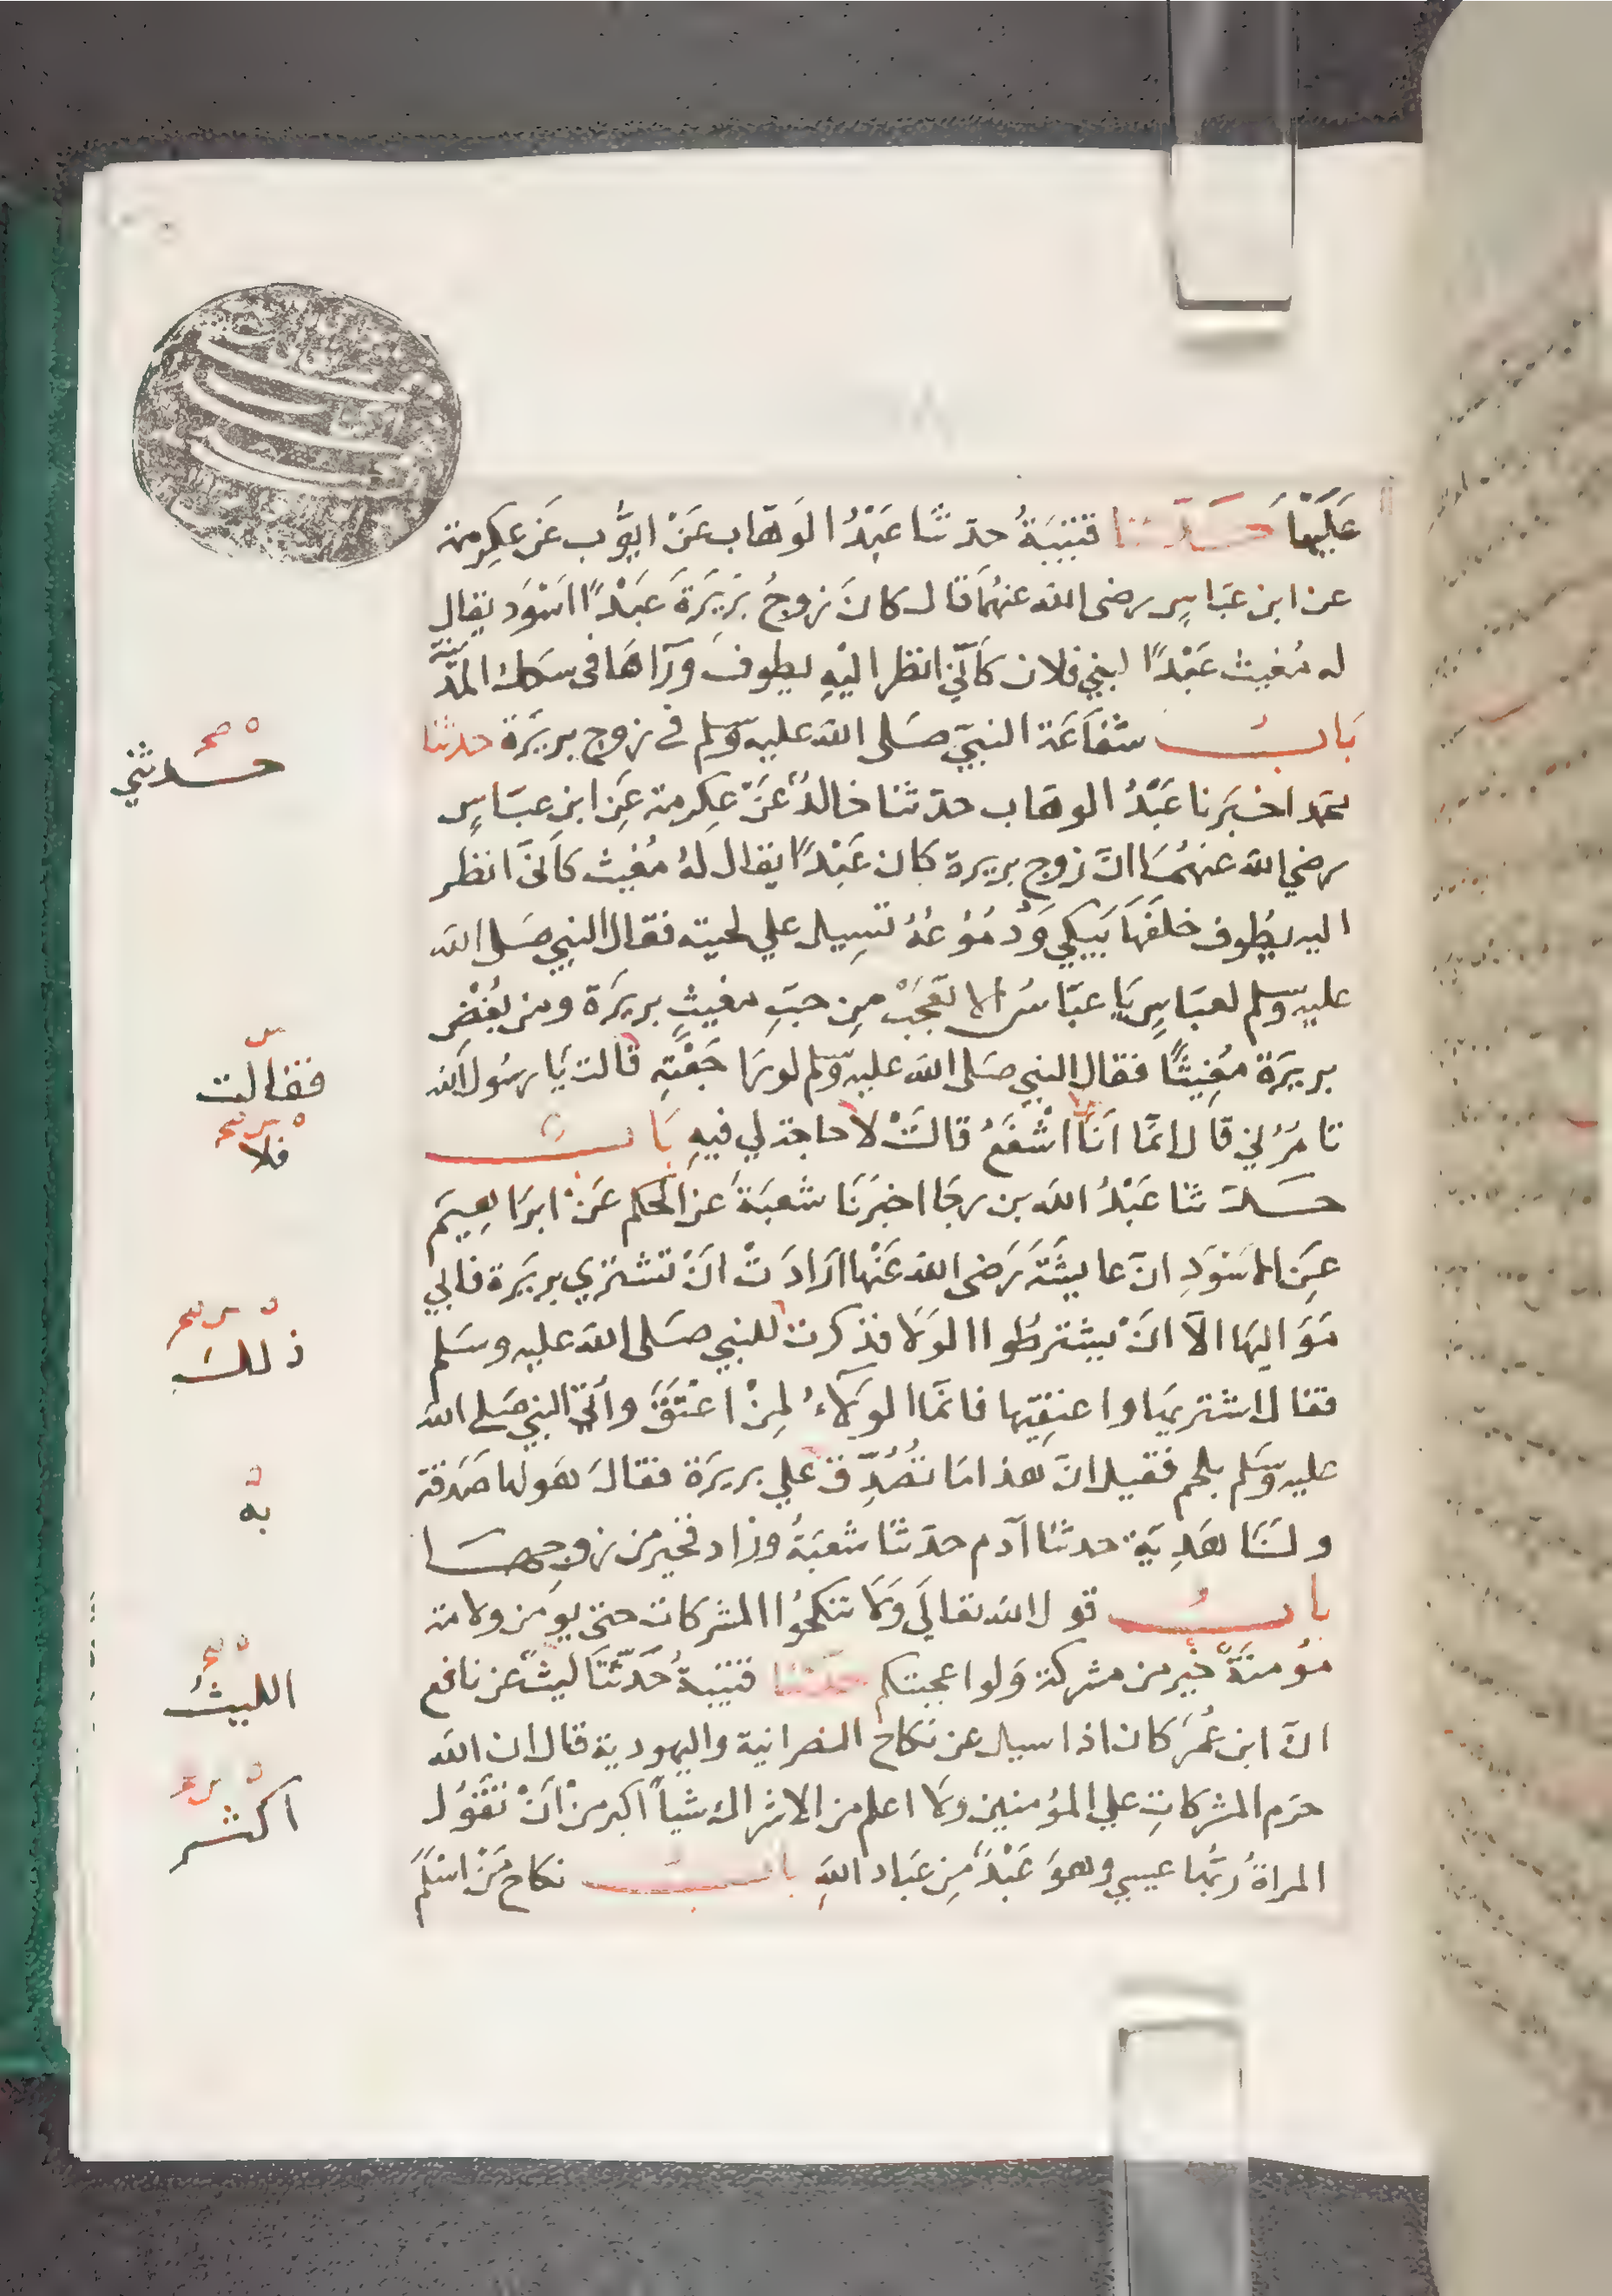 عَلَيْهَا حَدّثنا قتيبَةُ حدثنَا عَبْدُ الوَهّاب عَنْ ايّوُب عَن عِكِرمة
عن ابن عبَاسٍ رضى الله عنهُمَا قال كانَ زوجُ بَرِيَرَةَ عَبَدًا اسْوَد يقال
له مُغيث عَبْدًا لبني فلان كَأنّي انظر اليْهِ يطوف وَرآاهَا فى سكك المدّينة
بَابُ شفَاعَة النبيّ صَلى الله عليه وسّلم في زوج بريرَة حدثنا
محمّد اخبَرنا عَبْدُ الوهّاب حدّثنا خالدُ عَنّ عِكرمة عَنِ ابنِ عبَاسٍ
رضي الله عنهُمَا انَّ زوج بريرة كان عَبْدًا يقال لهُ مُغيث كأنىّ انظر
اليه يطُوف خلَفَهَا يَبكِي وَدُمُوُعُهُ تَسِيل علي لحيته فقال النبي صَلى الله
عليه وسلم لعبَاسٍ يَا عبّاسُ الا تعَجَبْ مِن حبّ مغيثٍ بريرَة ومن بُغْضِ
بريَرَة مُغِيثًا فقال النبي صَلى الله عليه وسّلم لو رَاجَعْتِهِ قالت يَا رسُول الله
تامُرُني قال انمّا انَا اشْفَعُ قالَتْ لا حاجة لي فيهِ بَابُ
حَدثنا عَبْدُ الله بن رجَا اخبَرنَا شعبَة عَن الحكم عَنْ ابرَاهِيَم
عَنِ الاسَوَدِ انّ عايشَةَ رَضى الله عَنْهَا ارَادَتْ انَْ تشتري بريَرة فابي
مَوَاليهَا الاّ انَْ يشترطُوا الوَلَا فذكرت للنبي صَلى الله عليه وسَلم
فقال اشتريهَا واعتِقِيها فانمّا الوَلَآءُ لِمنْ اعْتَقَ واُتيَ النبي صَلى الله
عليه وسَلم بلحم فقيل انّ هذا مَا تصُدِّق علي بريرَة فقالَ هَو لها صَدقة
ولَنَا هَدِيَة حدثنَا آدم حدّثنَا شعبَةُ وزاد فخير من زوجِهَا
بابُ قول الله تعَالَي وَلَا تنكحُوا المشركات حتى يومَن ولامة
مؤمنَةٌ خير من مشركة وَلو اعجبتكم حدثنا قتيبةُ حَدّثنَا ليثٌ عن نافع
انّ ابن عُمَر كان اذا سيل عن نكاح النصرانية واليهودية قال ان الله
حرَم المشركاتِ علي المؤمنين ولَا اعلم من الاشراك شيأً اكبر منْ انَْ تقَوُل
المراةُ ربُّهَا عيسي وهوَ عَبْدٌ مِن عبَاد اللهِ بابُ نكاح مَنْ اسْلَمَ
حَدثني
فقالت
فلا
ذلك
به
الليثُ
اكثر